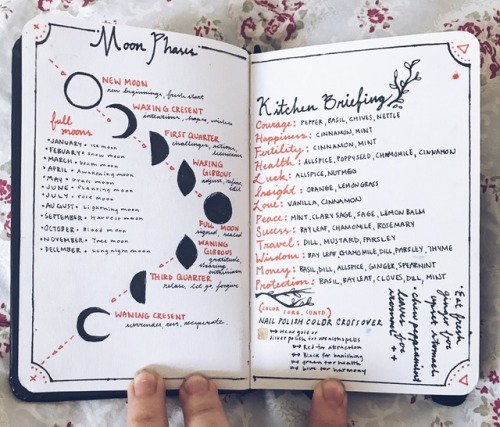 Moon Phases
NEW MOON
new beginnings, fresh start
WAXING CRESENT
intentions, hopes, wishes
full
moons
FIRST QUARTER
challenges, actions,
decisions
• JANUARY = Ice moon
• FEBUARY = Snow moon
• MARCH = Death moon
• APRIL = Awakening moon
• MAY = Grass moon
• JUNE = Planting moon
• JULY = rose moon
• AUGUST = Lightning moon
• SEPTEMBER = Harvest moon
• OCTOBER = Blood moon
• NOVEMBER = Tree moon
• DECEMBER = Long night moon
WAXING
GIBBOUS
adjust, refine,
edit
FULL MOON
signed, sealed
WANING
GIBBOUS
gratitude,
sharing,
enthusiasm
THIRD QUARTER
release, let go, forgive
WANING CRESENT
surrender, rest, recuperate.
Kitchen Briefing
Courage: PEPPER, BASIL, CHIVES, NETTLE
Happiness: CINNAMON, MINT
Fertility: CINNAMON, MINT
Health: ALLSPICE, POPPYSEED, CHAMOMILE, CINNAMON
Luck: ALLSPICE, NUTMEG
Insight: ORANGE, LEMONGRASS
Love: VANILLA, CINNAMON
Peace: MINT, CLARY SAGE, SAGE, LEMON BALM
Sucess: BAY LEAF, CHAMOMILE, ROSEMARY
Travel: DILL, MUSTARD, PARSLEY
Wisdom: BAY LEAF, CHAMOMILE, DILL, PARSLEY, THYME
Money: BASIL, DILL, ALLSPICE, GINGER, SPEARMINT
Protection: BASIL, BAY LEAF, CLOVES, DILL, MINT
(COLOR CORR. CONTD.)
NAIL POLISH COLOR CROSSOVER
Wear gold or
silver polish for wealth spells
Red for attraction
Black for banishing
green for health
blue for harmony
• Eat fresh
ginger for
upset stomach
• chew peppermint
leaves for